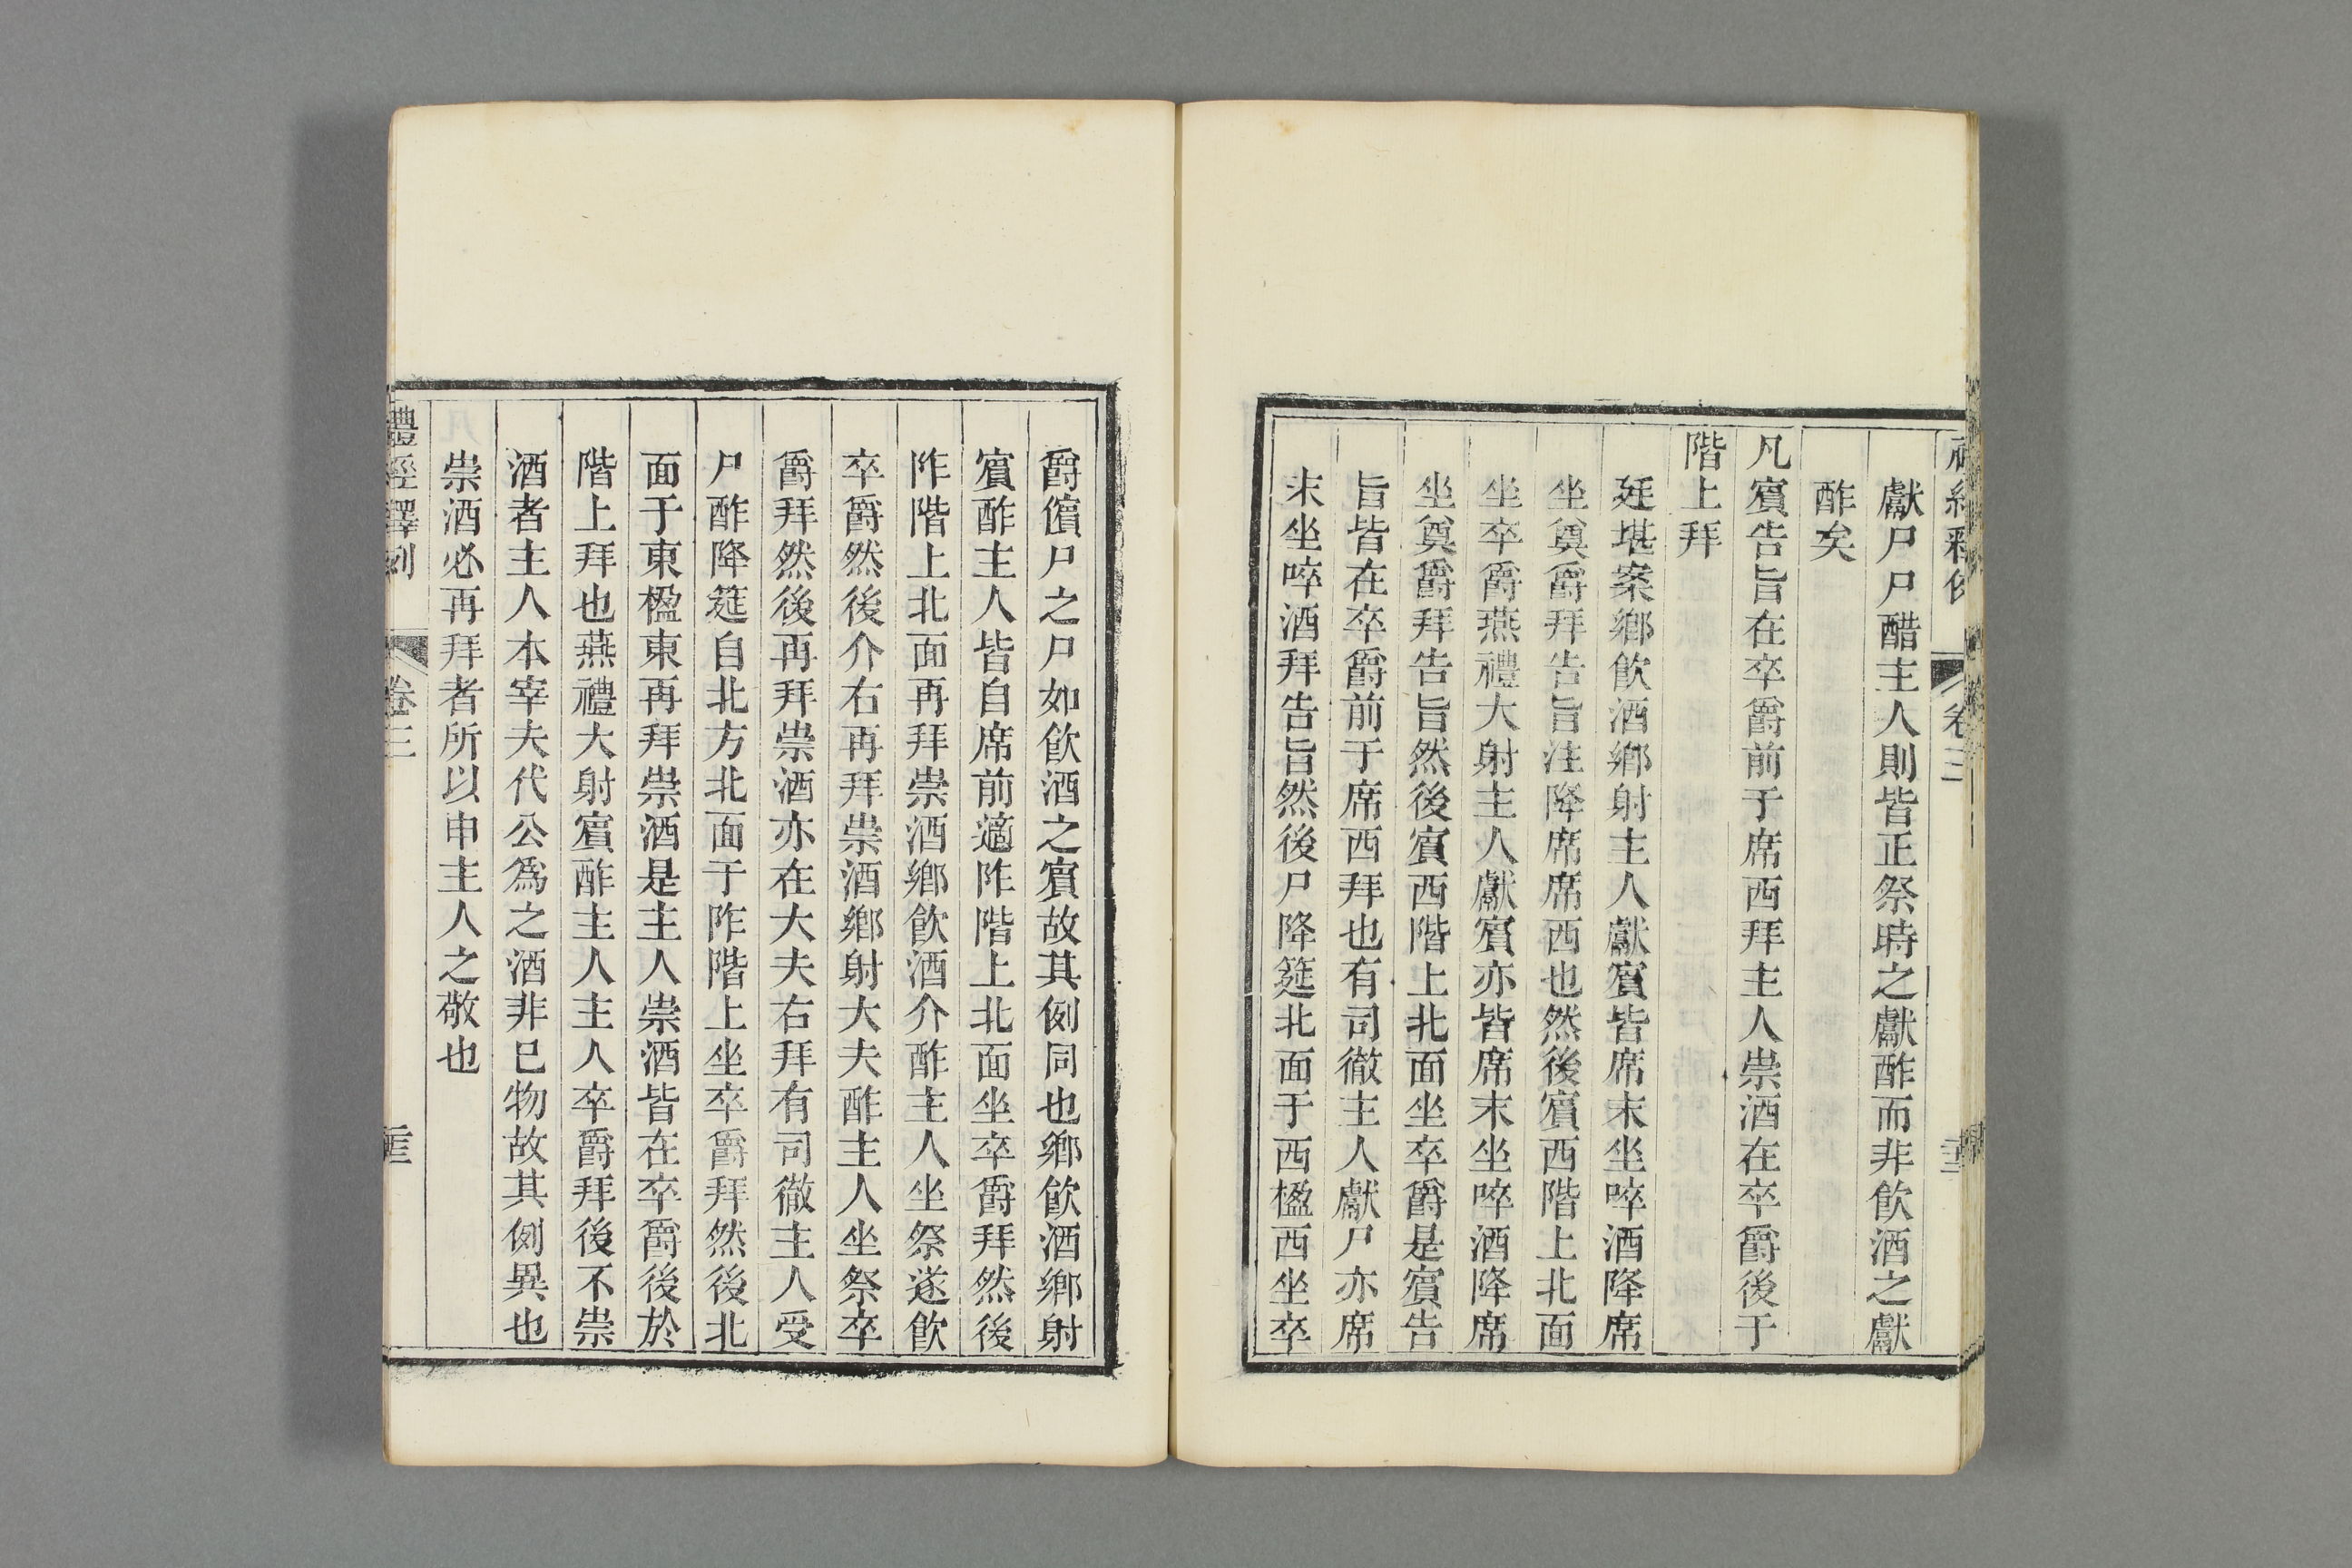 獻尸尸醋主人則皆正祭時之獻酢而非飲酒之獻
酢矣
凡賓告旨在卒爵前于席西拜主人崇酒在卒爵後于
階上拜
廷堪案鄉飲酒鄉射主人獻賓皆席末坐啐酒降席
坐奠爵拜告旨注降席席西也然後賓西階上北面
坐卒爵燕禮大射主人獻賓亦皆席末坐啐酒降席
坐奠爵拜告旨然後賓西階上北面坐卒爵是賓告
旨皆在卒爵前于席西拜也有司徹主人獻尸亦席
末坐啐酒拜告旨然後尸降筵北面于西楹西坐卒
爵儐尸之尸如飲酒之賓故其例同也鄉飲酒鄉射
賓酢主人皆自席前適阼階上北面坐卒爵拜然後
阼階上北面再拜崇酒鄉飲酒介酢主人坐祭遂飲
卒爵然後介右再拜崇酒鄉射大夫酢主人坐祭卒
爵拜然後再拜崇酒亦在大夫右拜有司徹主人受
尸酢降筵自北方北面于阼階上坐卒爵拜然後北
面于東楹東再拜崇酒是主人崇酒皆在卒爵後於
階上拜也燕禮大射賓酢主人主人卒爵拜後不崇
酒者主人本宰夫代公爲之酒非已物故其例異也
崇酒必再拜者所以申主人之敬也
禮經釋例 卷三